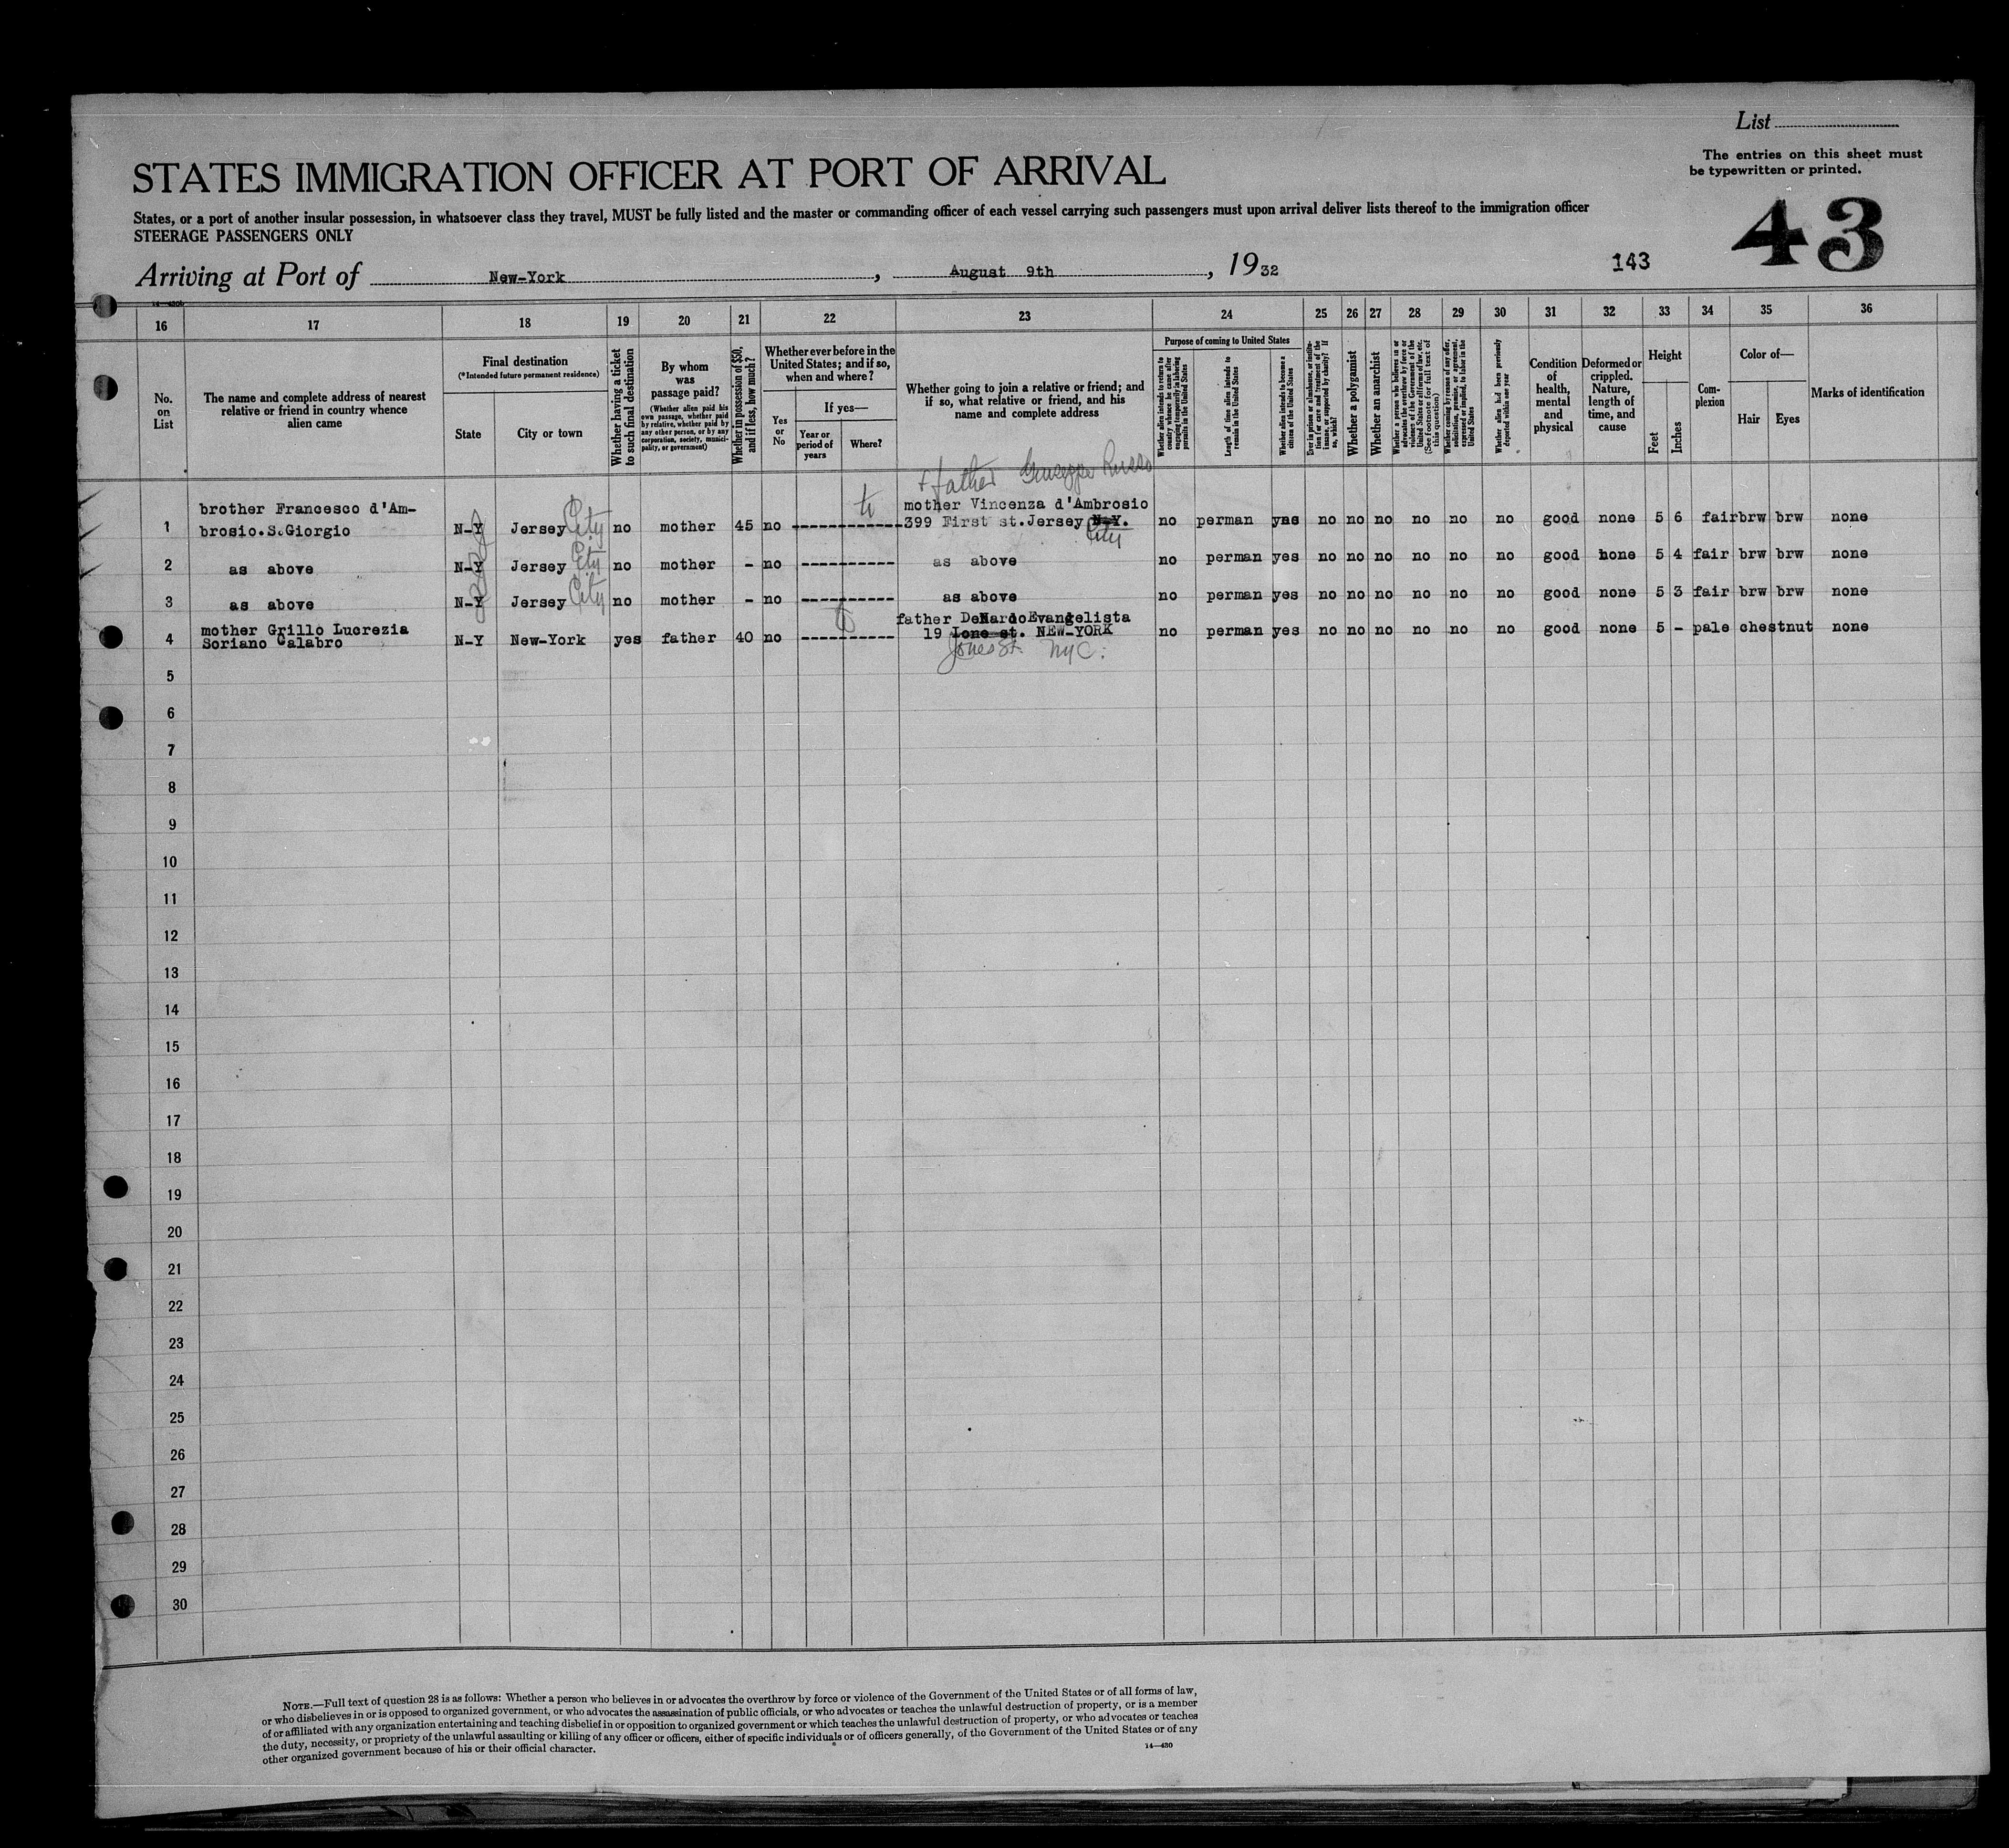 List
The entries on this sheet must
be typewritten or printed.
STATES IMMIGRATION OFFICER AT PORT OF ARRIVAL
States, or a port of another insular possession, in whatsoever class they travel, MUST be fully listed and the master or commanding officer of each vessel carrying such passengers must upon arrival deliver lists thereof to the immigration officer
STEERAGE PASSENGERS ONLY
43
Arriving at Port of New-York, August 9th, 1932
143
16 17 18 19 20 21 22 23 24 25 26 27 28 29 30 31 32 33 34 35 36
No.
on
List
The name and complete address of nearest
relative or friend in country whence
alien came
Final destination
(*Intended future permanent residence)
State
City or town
Whether having a ticket
to such final destination
By whom
was
passage paid?
(Whether alien paid his
own passage, whether paid
by relative, whether paid by
any other person, or by any
corporation, society, munici-
pality, or government)
Whether in possession of $50,
and if less, how much?
Whether ever before in the
United States; and if so,
when and where?
Yes
or
No
If yes—
Year or
period of
years
Where?
Whether going to join a relative or friend; and
if so, what relative or friend, and his
name and complete address
Purpose of coming to United States
Whether alien intends to return to
country whence he came after
engaging temporarily in laboring
pursuits in the United States
Length of time alien intends to
remain in the United States
Whether alien intends to become a
citizen of the United States
Ever in prison or almshouse, or institu-
tion for care and treatment of the
insane, or supported by charity? If
so, which?
Whether a polygamist
Whether an anarchist
Whether a person who believes in or
advocates the overthrow by force or
violence of the Government of the
United States or all forms of law, etc.
(See footnote for full text of
this question)
Whether coming by reason of any offer,
solicitation, promise, or agreement,
expressed or implied, to labor in the
United States
Whether alien had been previously
deported within one year
Condition
of
health,
mental
and
physical
Deformed or
crippled.
Nature,
length of
time, and
cause
Height
Feet
Inches
Com-
plexion
Color of—
Hair
Eyes
Marks of identification
+ father Giuseppe Russo
brother Francesco d'Am- mother Vincenza d'Ambrosio
1 brosio.S.Giorgio N-Y Jersey City no mother 45 no ---------- 399 First st.Jersey N-Y. City no perman yes no no no no no no good none 5 6 fair brw brw none
2 as above N-Y Jersey City no mother - no ---------- as above no perman yes no no no no no no good none 5 4 fair brw brw none
3 as above N-Y Jersey City no mother - no ---------- as above no perman yes no no no no no no good none 5 3 fair brw brw none
mother Grillo Lucrezia father DeNardo Evangelista
4 Soriano Calabro N-Y New-York yes father 40 no ---------- 19 Lone st. NEW-YORK no perman yes no no no no no no good none 5 - pale chestnut none
Jones St. NYC.
5
6
7
8
9
10
11
12
13
14
15
16
17
18
19
20
21
22
23
24
25
26
27
28
29
30
NOTE.—Full text of question 28 is as follows: Whether a person who believes in or advocates the overthrow by force or violence of the Government of the United States or of all forms of law,
or who disbelieves in or is opposed to organized government, or who advocates the assassination of public officials, or who advocates or teaches the unlawful destruction of property, or is a member
of or affiliated with any organization entertaining and teaching disbelief in or opposition to organized government or which teaches the unlawful destruction of property, or who advocates or teaches
the duty, necessity, or propriety of the unlawful assaulting or killing of any officer or officers, either of specific individuals or of officers generally, of the Government of the United States or of any
other organized government because of his or their official character.
14—430